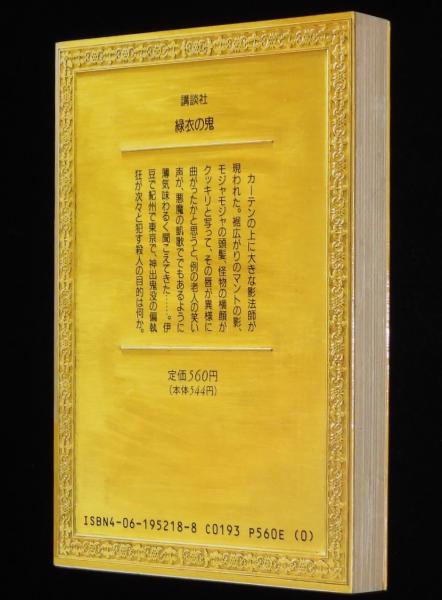 講談社
緑衣の鬼
カーテンの上に大きな影法師が
現われた。裾広がりのマントの影、
モジャモジャの頭髪、怪物の横顔が
クッキリと写って、その唇が異様に
曲がったかと思うと、例の老人の笑い
声が、悪魔の凱歌ででもあるように
薄気味わるく聞こえてきた……。伊
豆で紀州で東京で、神出鬼没の偏執
狂が次々と犯す殺人の目的は何か。
定価560円
(本体544円)
ISBN4-06-195218-8 C0193 P560E (0)